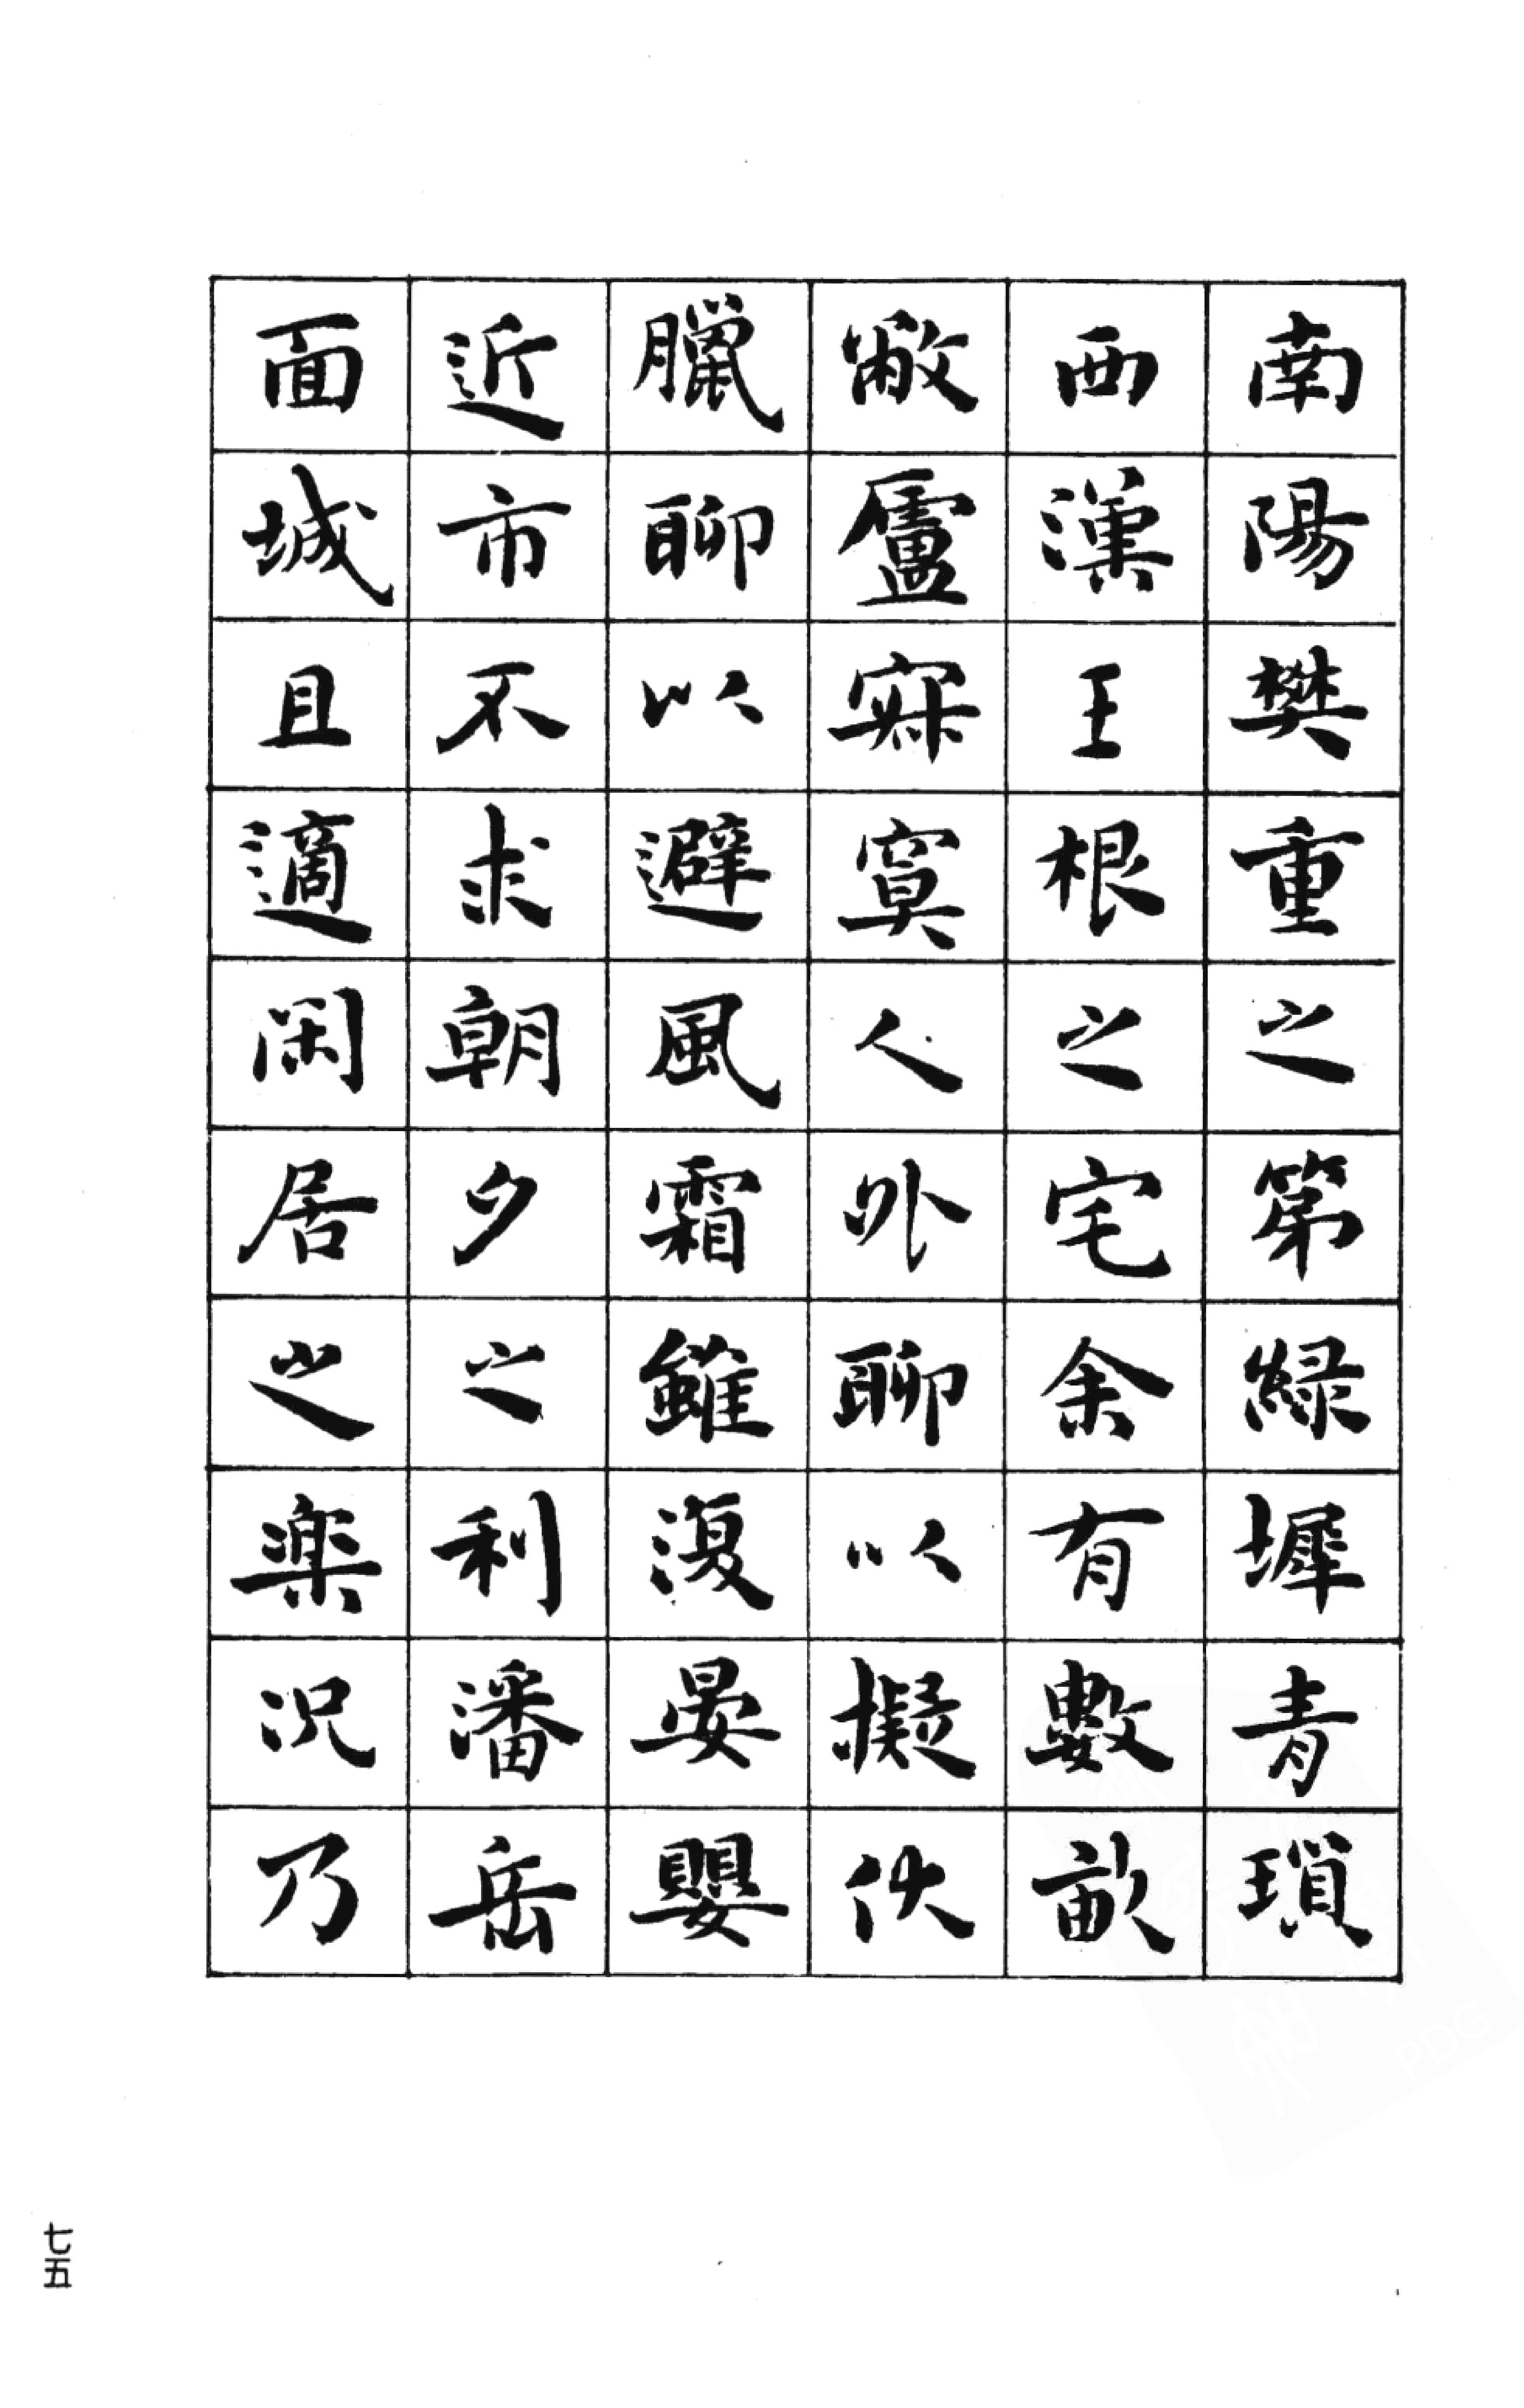 南陽樊重之第緑墀青瑣
西漢王根之宅余有數畝
敝廬寂寞人外聊以擬伏
臘聊以避風霜雖復晏嬰
近市不求朝夕之利潘岳
面城且適閑居之樂況乃
七五
PDG